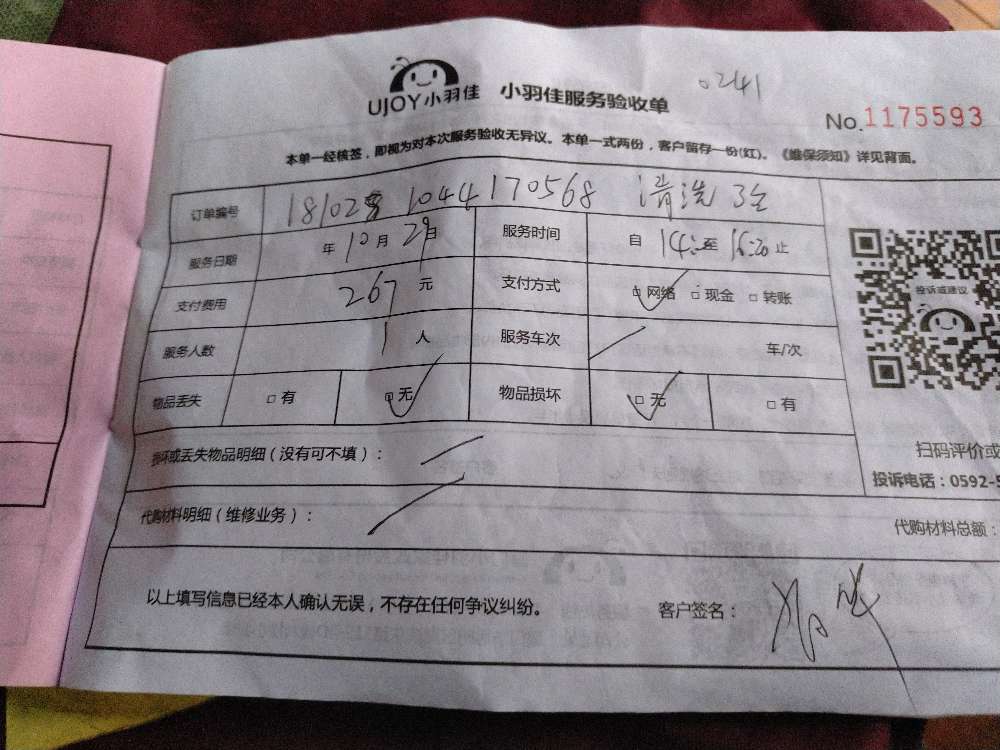 UJOY小羽佳 小羽佳服务验收单 0241
No.1175593
本单一经核签，即视为对本次服务验收无异议。本单一式两份，客户留存一份(红)。《维保须知》详见背面。
订单编号 18102 1044170568 清洗3台
服务日期 年10月29日 服务时间 自14:至16:20止
支付费用 267元 支付方式 网络 现金 转账
服务人数 1人 服务车次 车/次
物品丢失 有 无 物品损坏 无 有
投诉或建议
损坏或丢失物品明细（没有可不填）：
扫码评价或
投诉电话：0592-5
代购材料明细（维修业务）：
代购材料总额：
以上填写信息已经本人确认无误，不存在任何争议纠纷。 客户签名：